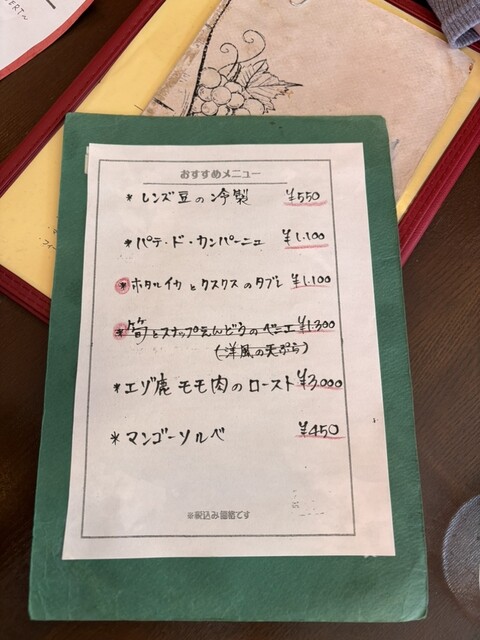 おすすめメニュー
* レンズ豆の冷製 ¥550
* パテ・ド・カンパーニュ ¥1.100
* ホタルイカとクスクスのタブレ ¥1.100
* 筍とスナップえんどうのベニエ ¥1.300
(洋風の天ぷら)
* エゾ鹿 モモ肉のロースト ¥3,000
* マンゴーソルベ ¥450
※税込み価格です